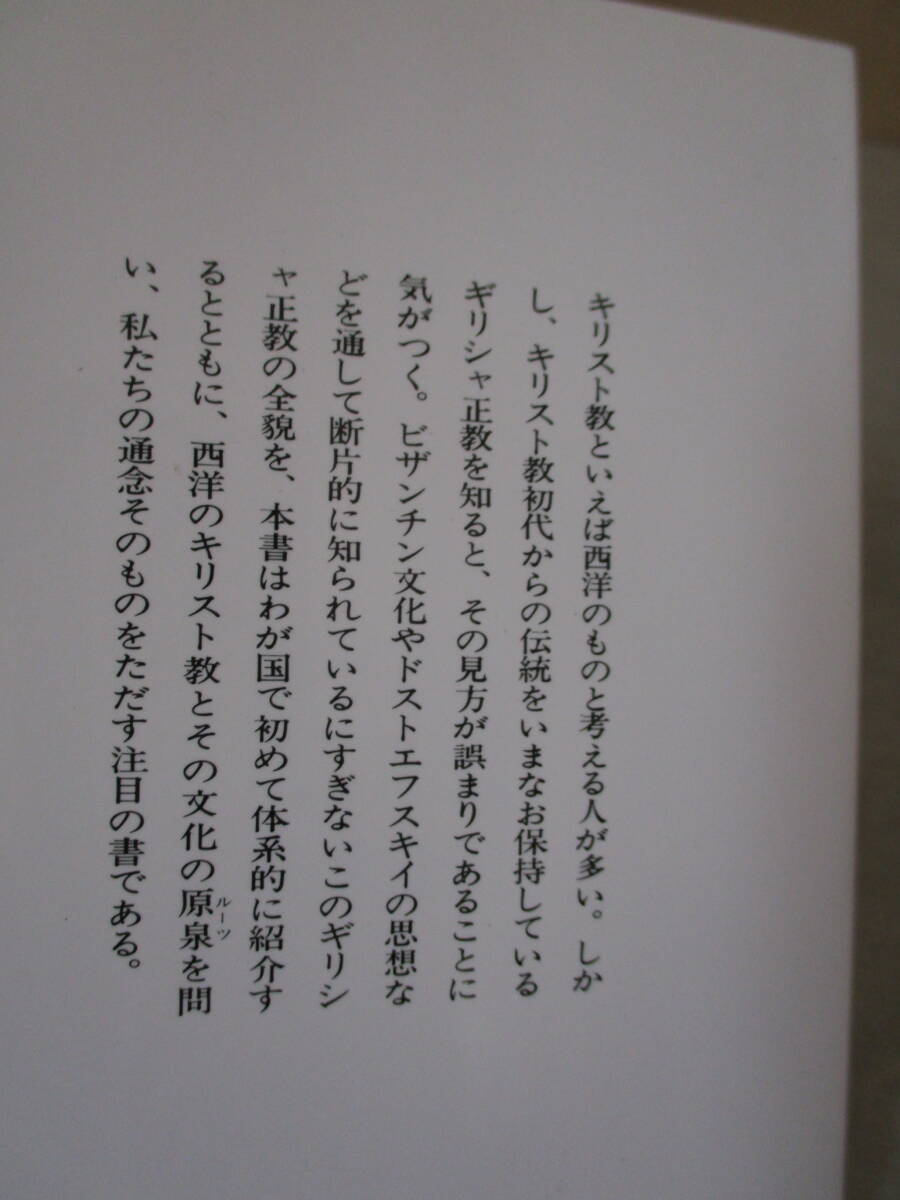 キリスト教といえば西洋のものと考える人が多い。しか
し、キリスト教初代からの伝統をいまなお保持している
ギリシャ正教を知ると、その見方が誤まりであることに
気がつく。ビザンチン文化やドストエフスキイの思想な
どを通して断片的に知られているにすぎないこのギリシ
ャ正教の全貌を、本書はわが国で初めて体系的に紹介す
るとともに、西洋のキリスト教とその文化の原泉ルーツを問
い、私たちの通念そのものをただす注目の書である。